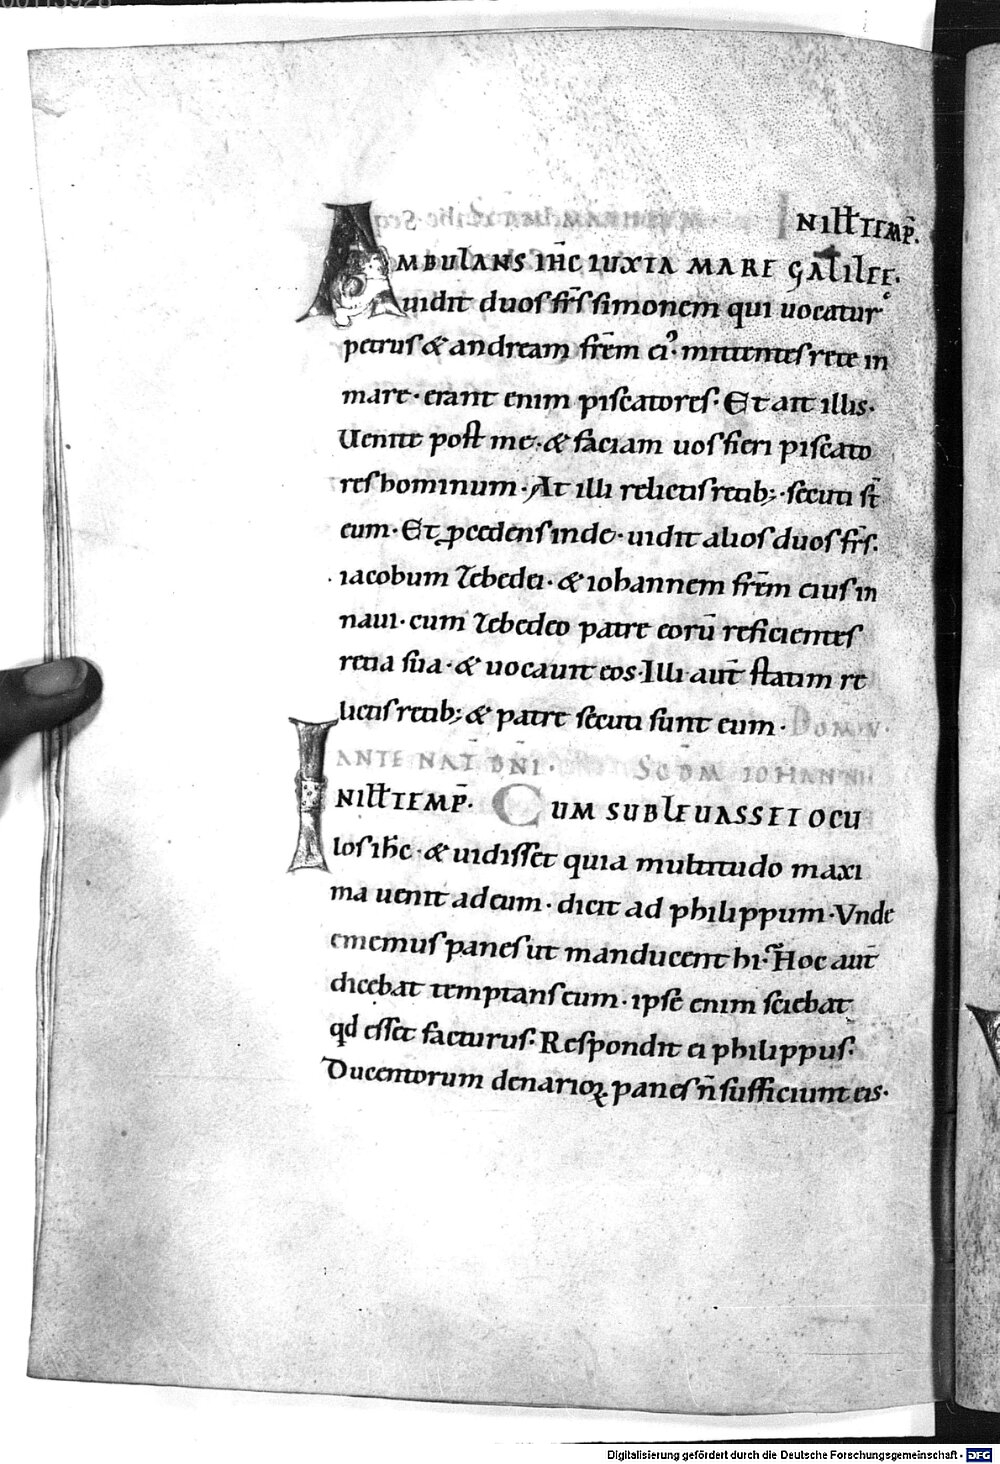 IN ILL̅ TEMP̅.
AMBULANS IH̅C IUXTA MARE GALILEE.
uidit duos fr̅s simonem qui uocatur
petrus & andream fr̅em ei᾿· mittentes rete in
mare· erant enim piscatores· Et ait illis·
Uenite post me· & faciam uos fieri piscato
res hominum· At illi relictis retib;· secuti st̅
eum· Et ꝓcedens inde· uidit alios duos fr̅s·
iacobum zebedei· & iohannem fr̅em eius in
naui· cum zebedeo patre eoru̅ reficientes
retia sua· & uocauit eos· Illi aut̅ statim re
lictis retib; & patre secuti sunt eum· DOM̅ IV·
ANTE NAT̅ DN̅I· SCD̅M IOHANNĒ
IN ILL̅ TEMP̅. CUM SUBLEUASSET OCU
los ih̅c· & uidisset quia multitudo maxi
ma uenit ad eum· dicit ad philippum· Vnde
ememus panes ut manducent hi· Hoc aut̅
dicebat temptans eum· ipse enim sciebat
qd esset facturus· Respondit ei philippus·
Ducentorum denarioꝝ panes n̅ sufficiunt eis·
Digitalisierung gefördert durch die Deutsche Forschungsgemeinschaft - DFG